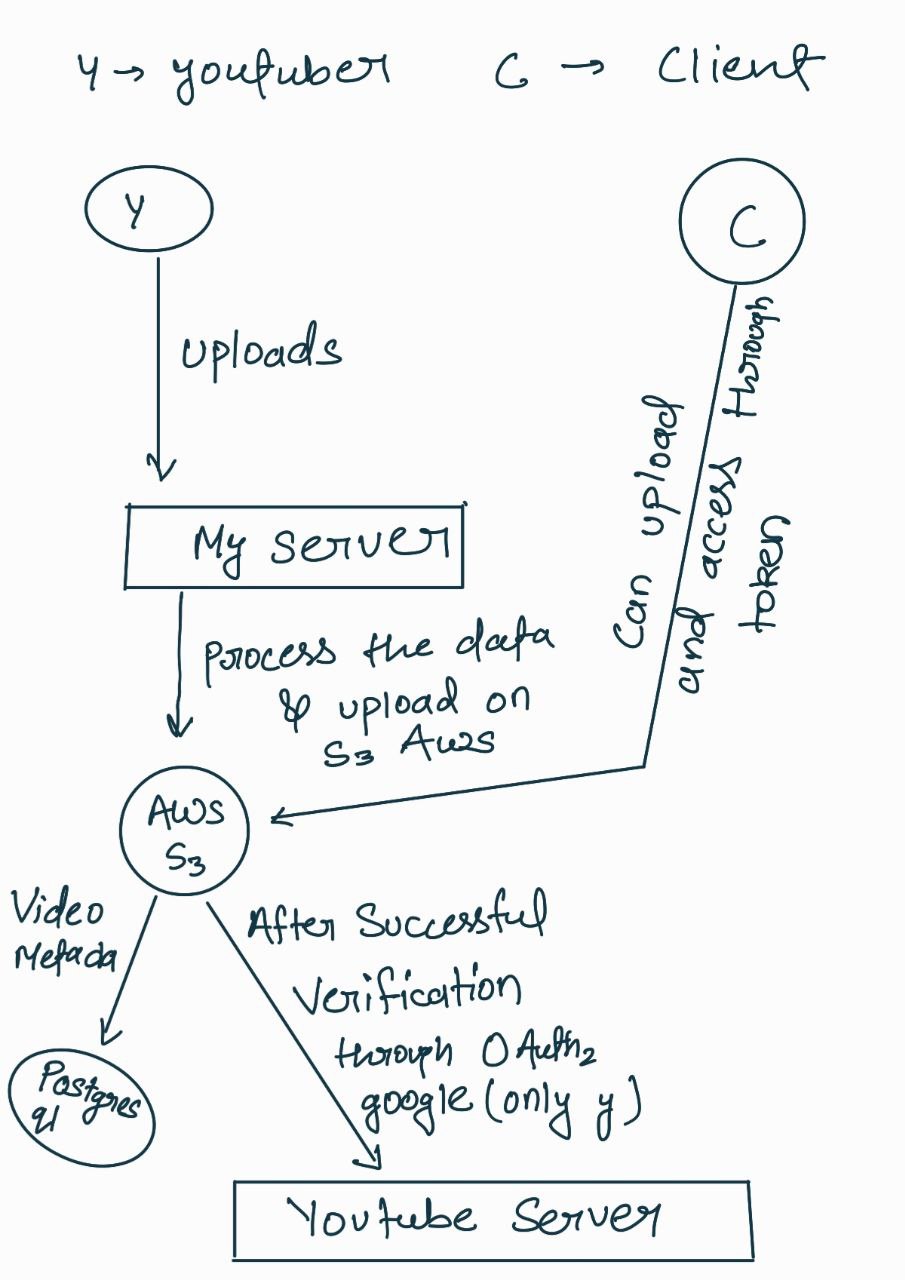 Y → youtuber C → Client
Y
C
uploads
Can upload
and access through
token
My server
process the data
& upload on
S3 Aws
AWS
S3
Video
Metada
After Successful
Verification
through OAuth2
google (only y)
Postgres
ql
Youtube Server